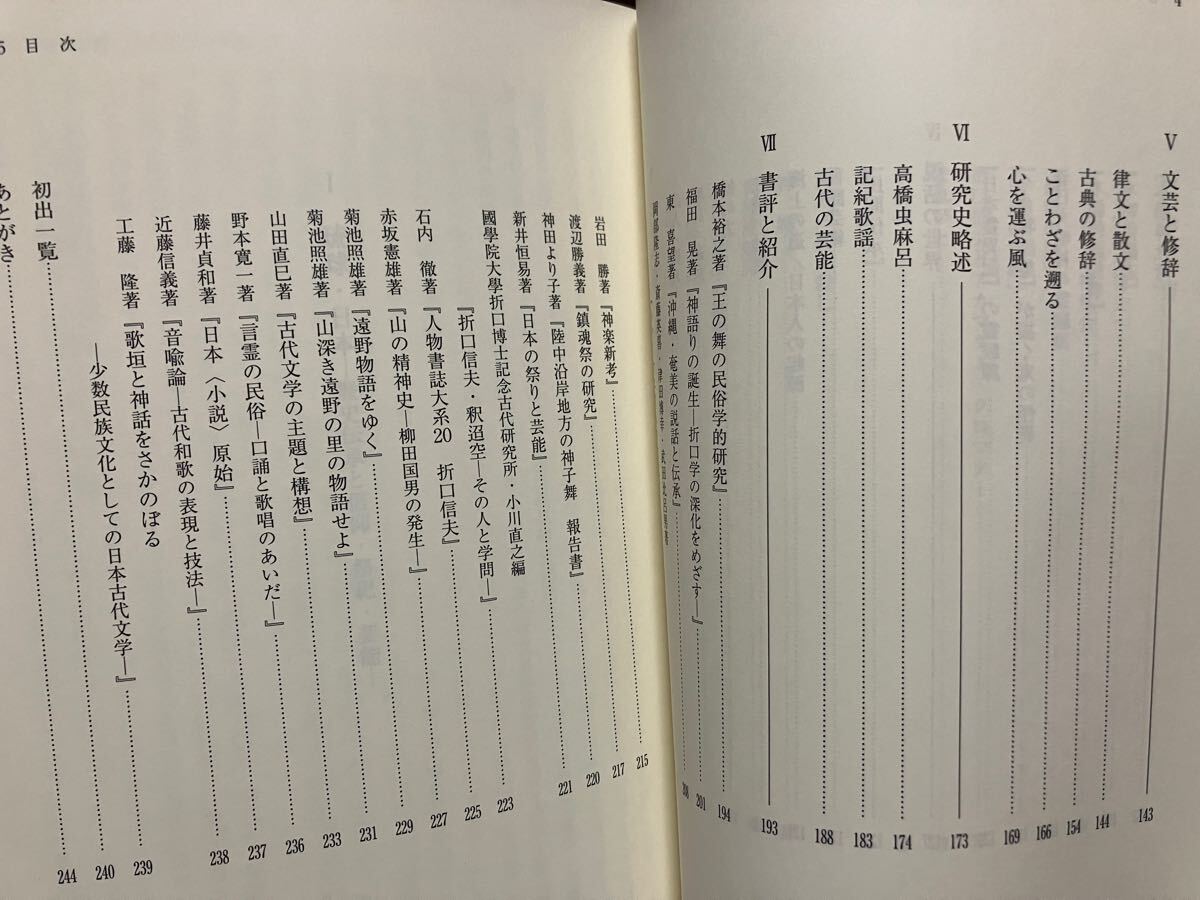 4
Ⅴ 文芸と修辞 143
律文と散文 144
古典の修辞 154
ことわざを遡る 166
心を運ぶ風 169
Ⅵ 研究史略述 173
高橋虫麻呂 174
記紀歌謡 183
古代の芸能 188
Ⅶ 書評と紹介 193
橋本裕之著『王の舞の民俗学的研究』 194
福田 晃著『神語りの誕生―折口学の深化をめざす―』 201
東 喜望著『沖縄・奄美の説話と伝承』 208
岡部隆志・斎藤英喜・津田博幸・武田比呂男著
215
岩田 勝著『神楽新考』 217
渡辺勝義著『鎮魂祭の研究』 220
神田より子著『陸中沿岸地方の神子舞 報告書』 221
新井恒易著『日本の祭りと芸能』 223
國學院大學折口博士記念古代研究所・小川直之編
『折口信夫・釈迢空―その人と学問―』 225
石内 徹著『人物書誌大系20 折口信夫』 227
赤坂憲雄著『山の精神史―柳田国男の発生―』 229
菊池照雄著『遠野物語をゆく』 231
菊池照雄著『山深き遠野の里の物語せよ』 233
山田直巳著『古代文学の主題と構想』 236
野本寛一著『言霊の民俗―口誦と歌唱のあいだ―』 237
藤井貞和著『日本〈小説〉原始』 238
近藤信義著『音喩論―古代和歌の表現と技法―』 239
工藤 隆著『歌垣と神話をさかのぼる
―少数民族文化としての日本古代文学―』 240
初出一覧 244
あとがき
5 目次